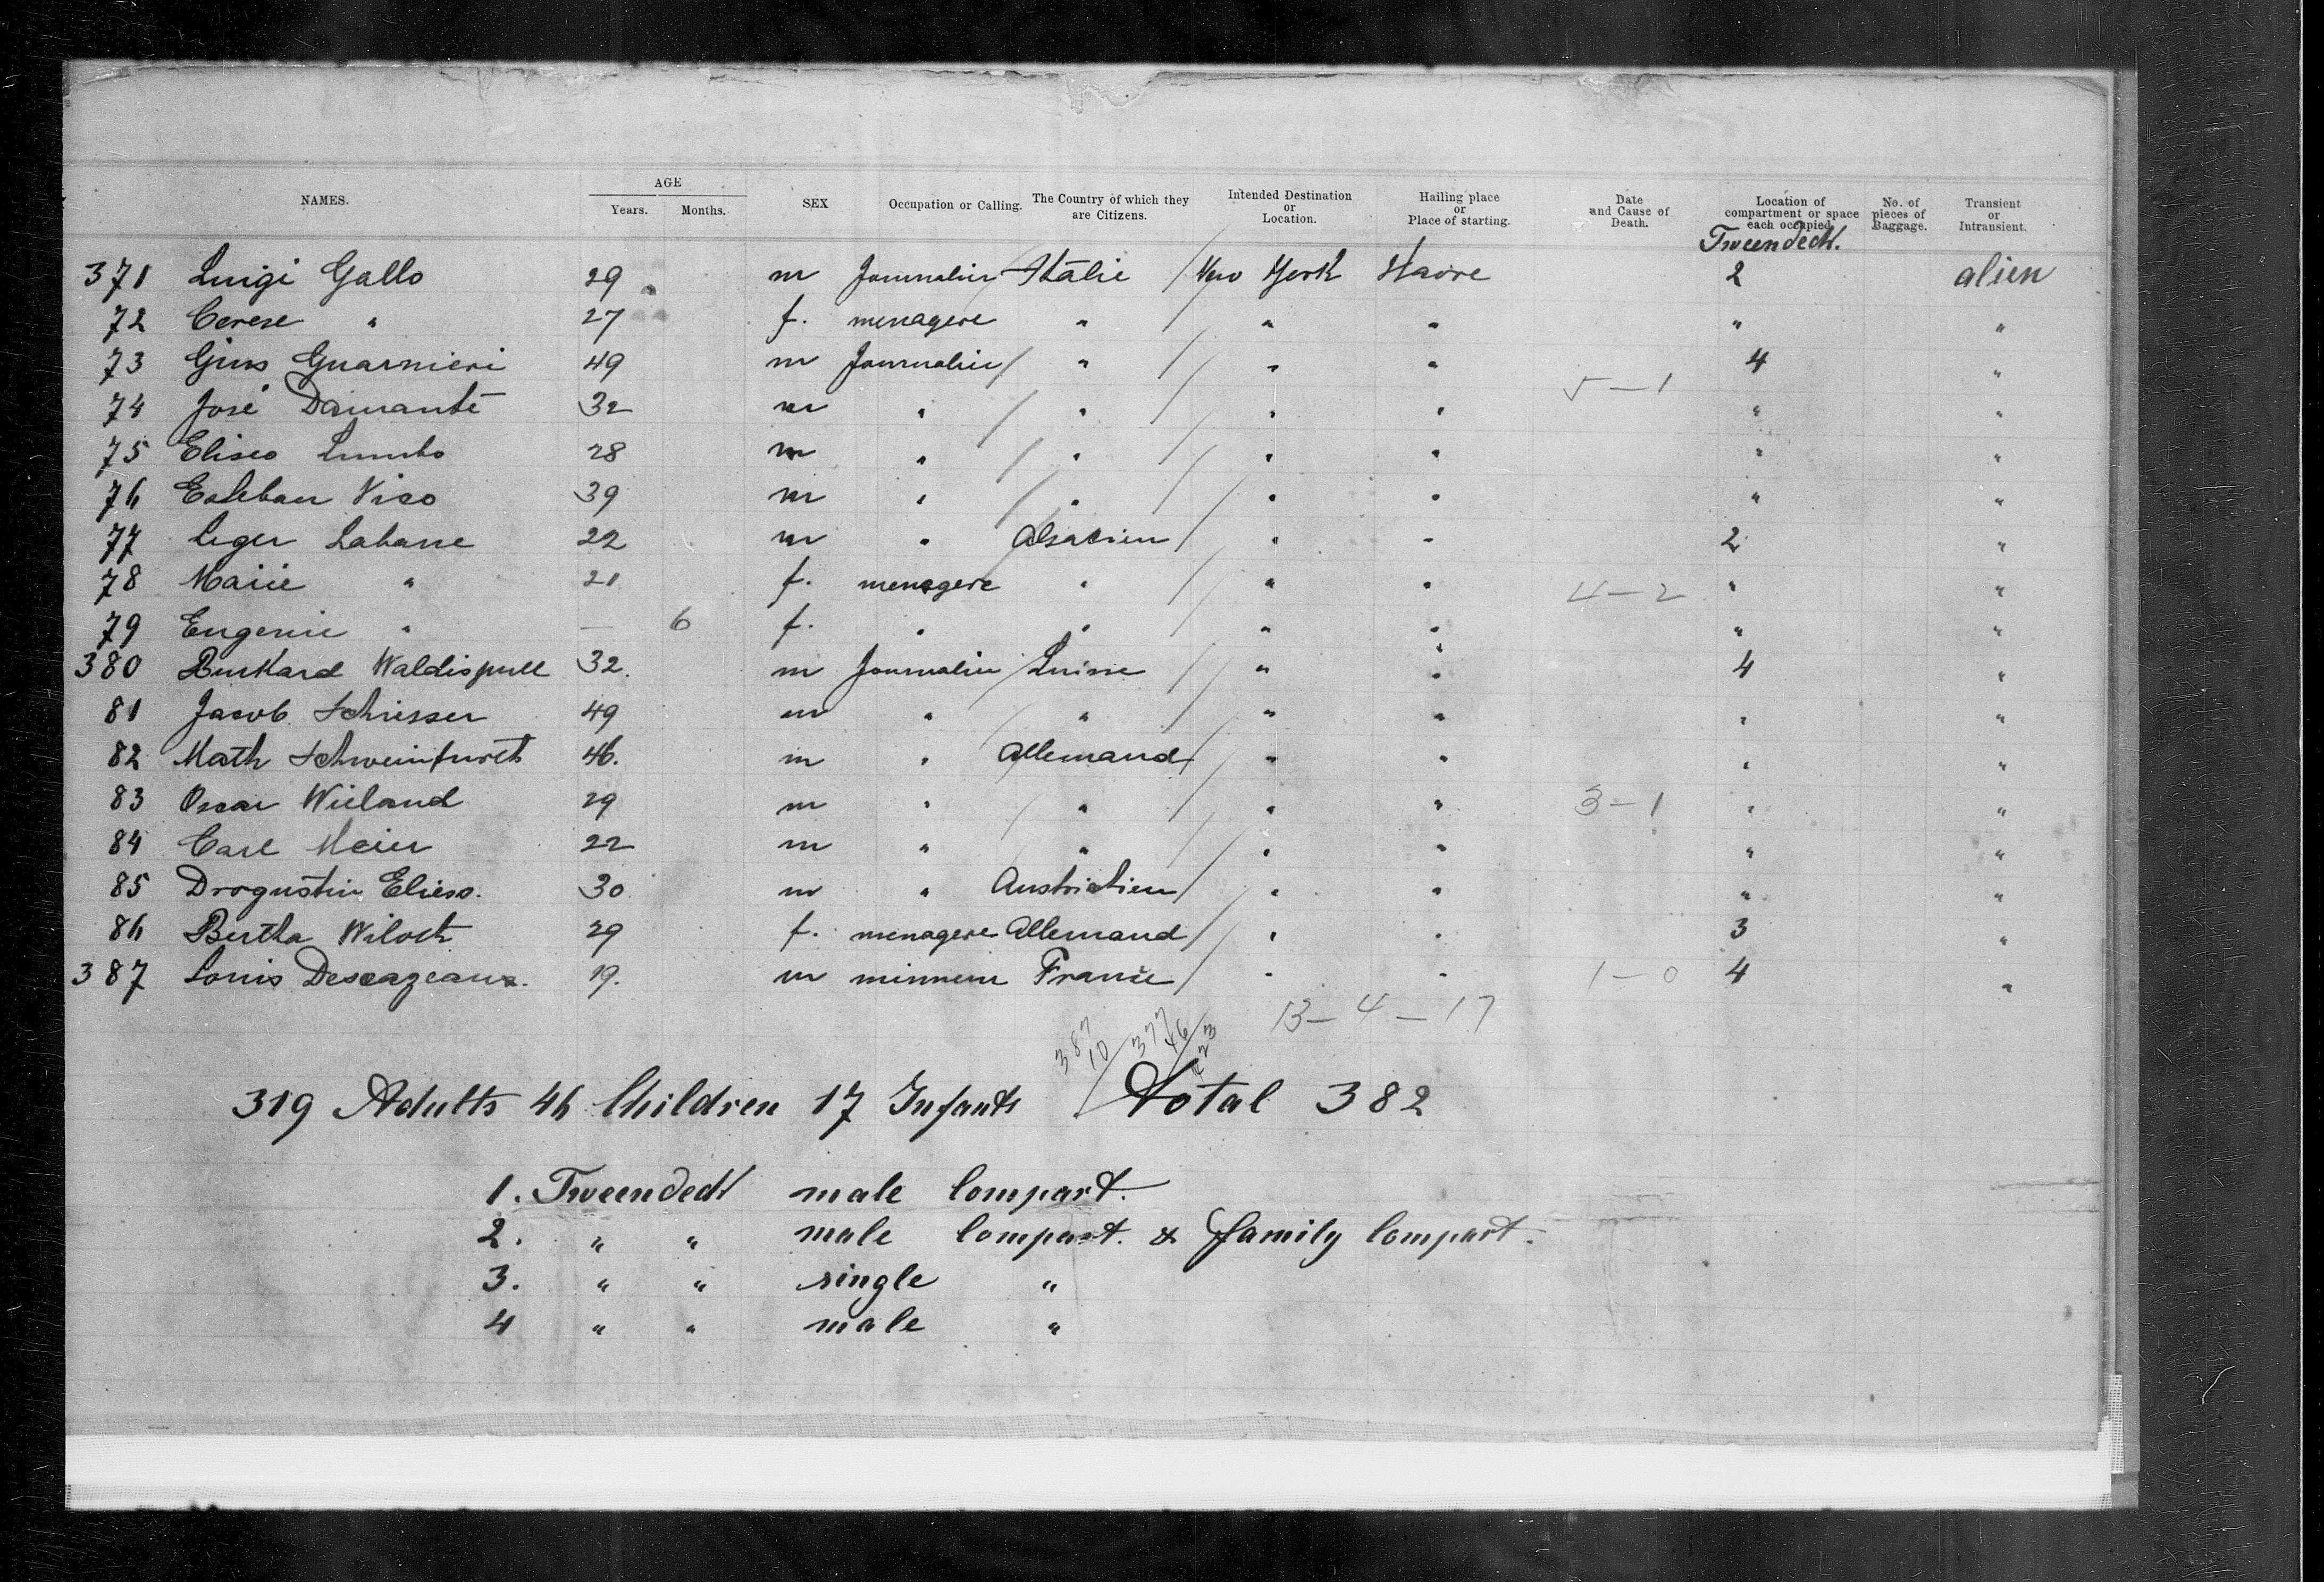 NAMES. AGE Years. Months. SEX Occupation or Calling. The Country of which they are Citizens. Intended Destination or Location. Hailing place or Place of starting. Date and Cause of Death. Location of compartment or space each occupied. No. of pieces of Baggage. Transient or Intransient.
Tweendeck.
371 Luigi Gallo 29 m Journalier Italie New York Havre 2 alien
72 Cerese " 27 f. menagere " " " " "
73 Gius Guarnieri 49 m Journalier " " " 4 "
5-1
74 José Damanté 32 m " " " " " "
75 Eliseo 28 m " " " " " "
76 Esteban Viso 39 m " " " " " "
77 Leger Labarre 22 m " Alsacien " " 2 "
78 Marie " 21 f. menagere " " " 4-2 " "
79 Eugenie " — 6 f. " " " " " "
380 Burkard Waldispull 32. m Journalier Suisse " " 4 "
81 Jacob Schiesser 49 m " " " " " "
82 Math Schweinfurth 46. m " Allemand " " " "
83 Oscar Wieland 29 m " " " " 3-1 " "
84 Carl Meier 22 m " " " " " "
85 Drogustin Elieso. 30 m " Austrichien " " " "
86 Bertha Wiloch 29 f. menagere Allemand " " 3 "
387 Louis Descazeaux. 19. m mineur France " " 1-0 4 "
13-4-17
387 10 / 377 46 / 423
319 Adults 46 Children 17 Infants / Total 382
1. Tweendeck male Compart.
2. " " male Compart. & family Compart.
3. " " single "
4 " " male "